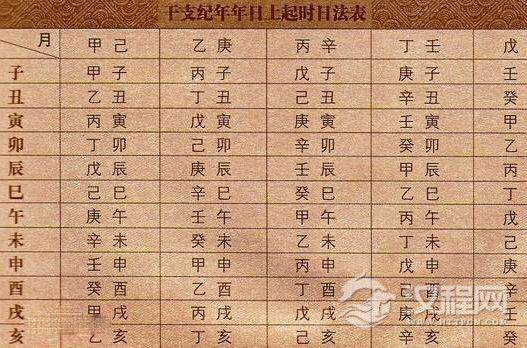 干支纪年年日上起时日法表
月 甲己 乙庚 丙辛 丁壬 戊
子 甲子 丙子 戊子 庚子 壬
丑 乙丑 丁丑 己丑 辛丑 癸
寅 丙寅 戊寅 庚寅 壬寅 甲
卯 丁卯 己卯 辛卯 癸卯 乙
辰 戊辰 庚辰 壬辰 甲辰 丙
巳 己巳 辛巳 癸巳 乙巳 丁
午 庚午 壬午 甲午 丙午 戊
未 辛未 癸未 乙未 丁未 己
申 壬申 甲申 丙申 戊申 庚
酉 癸酉 乙酉 丁酉 己酉 辛
戌 甲戌 丙戌 戊戌 庚戌 壬
亥 乙亥 丁亥 己亥 辛亥 癸
汉程网